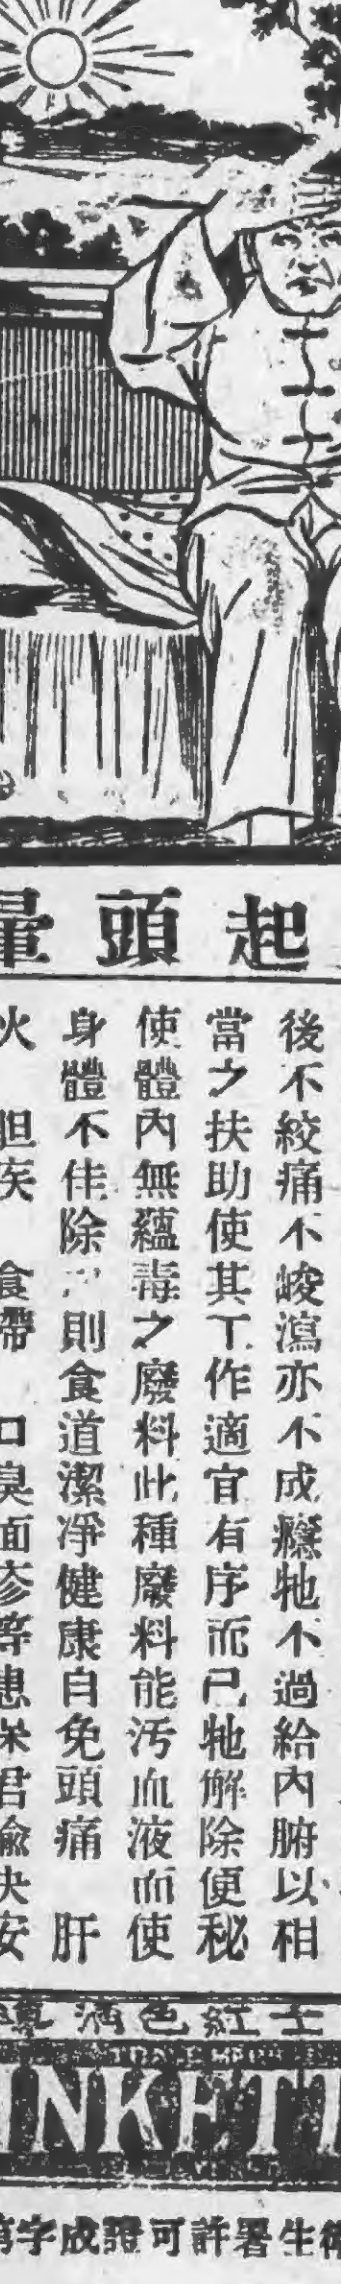 起頭暈
後不絞痛不峻瀉亦不成癮牠不過給內腑以相
當之扶助使其工作適宜有序而已牠解除便秘
使體內無蘊毒之廢料此種廢料能汚血液而使
身體不佳除 則食道潔凈健康自免頭痛 肝
火 胆疾 食滯 口臭面疹等患 君 快安
士紅色酒
INKETT
衛生署許可證成字第